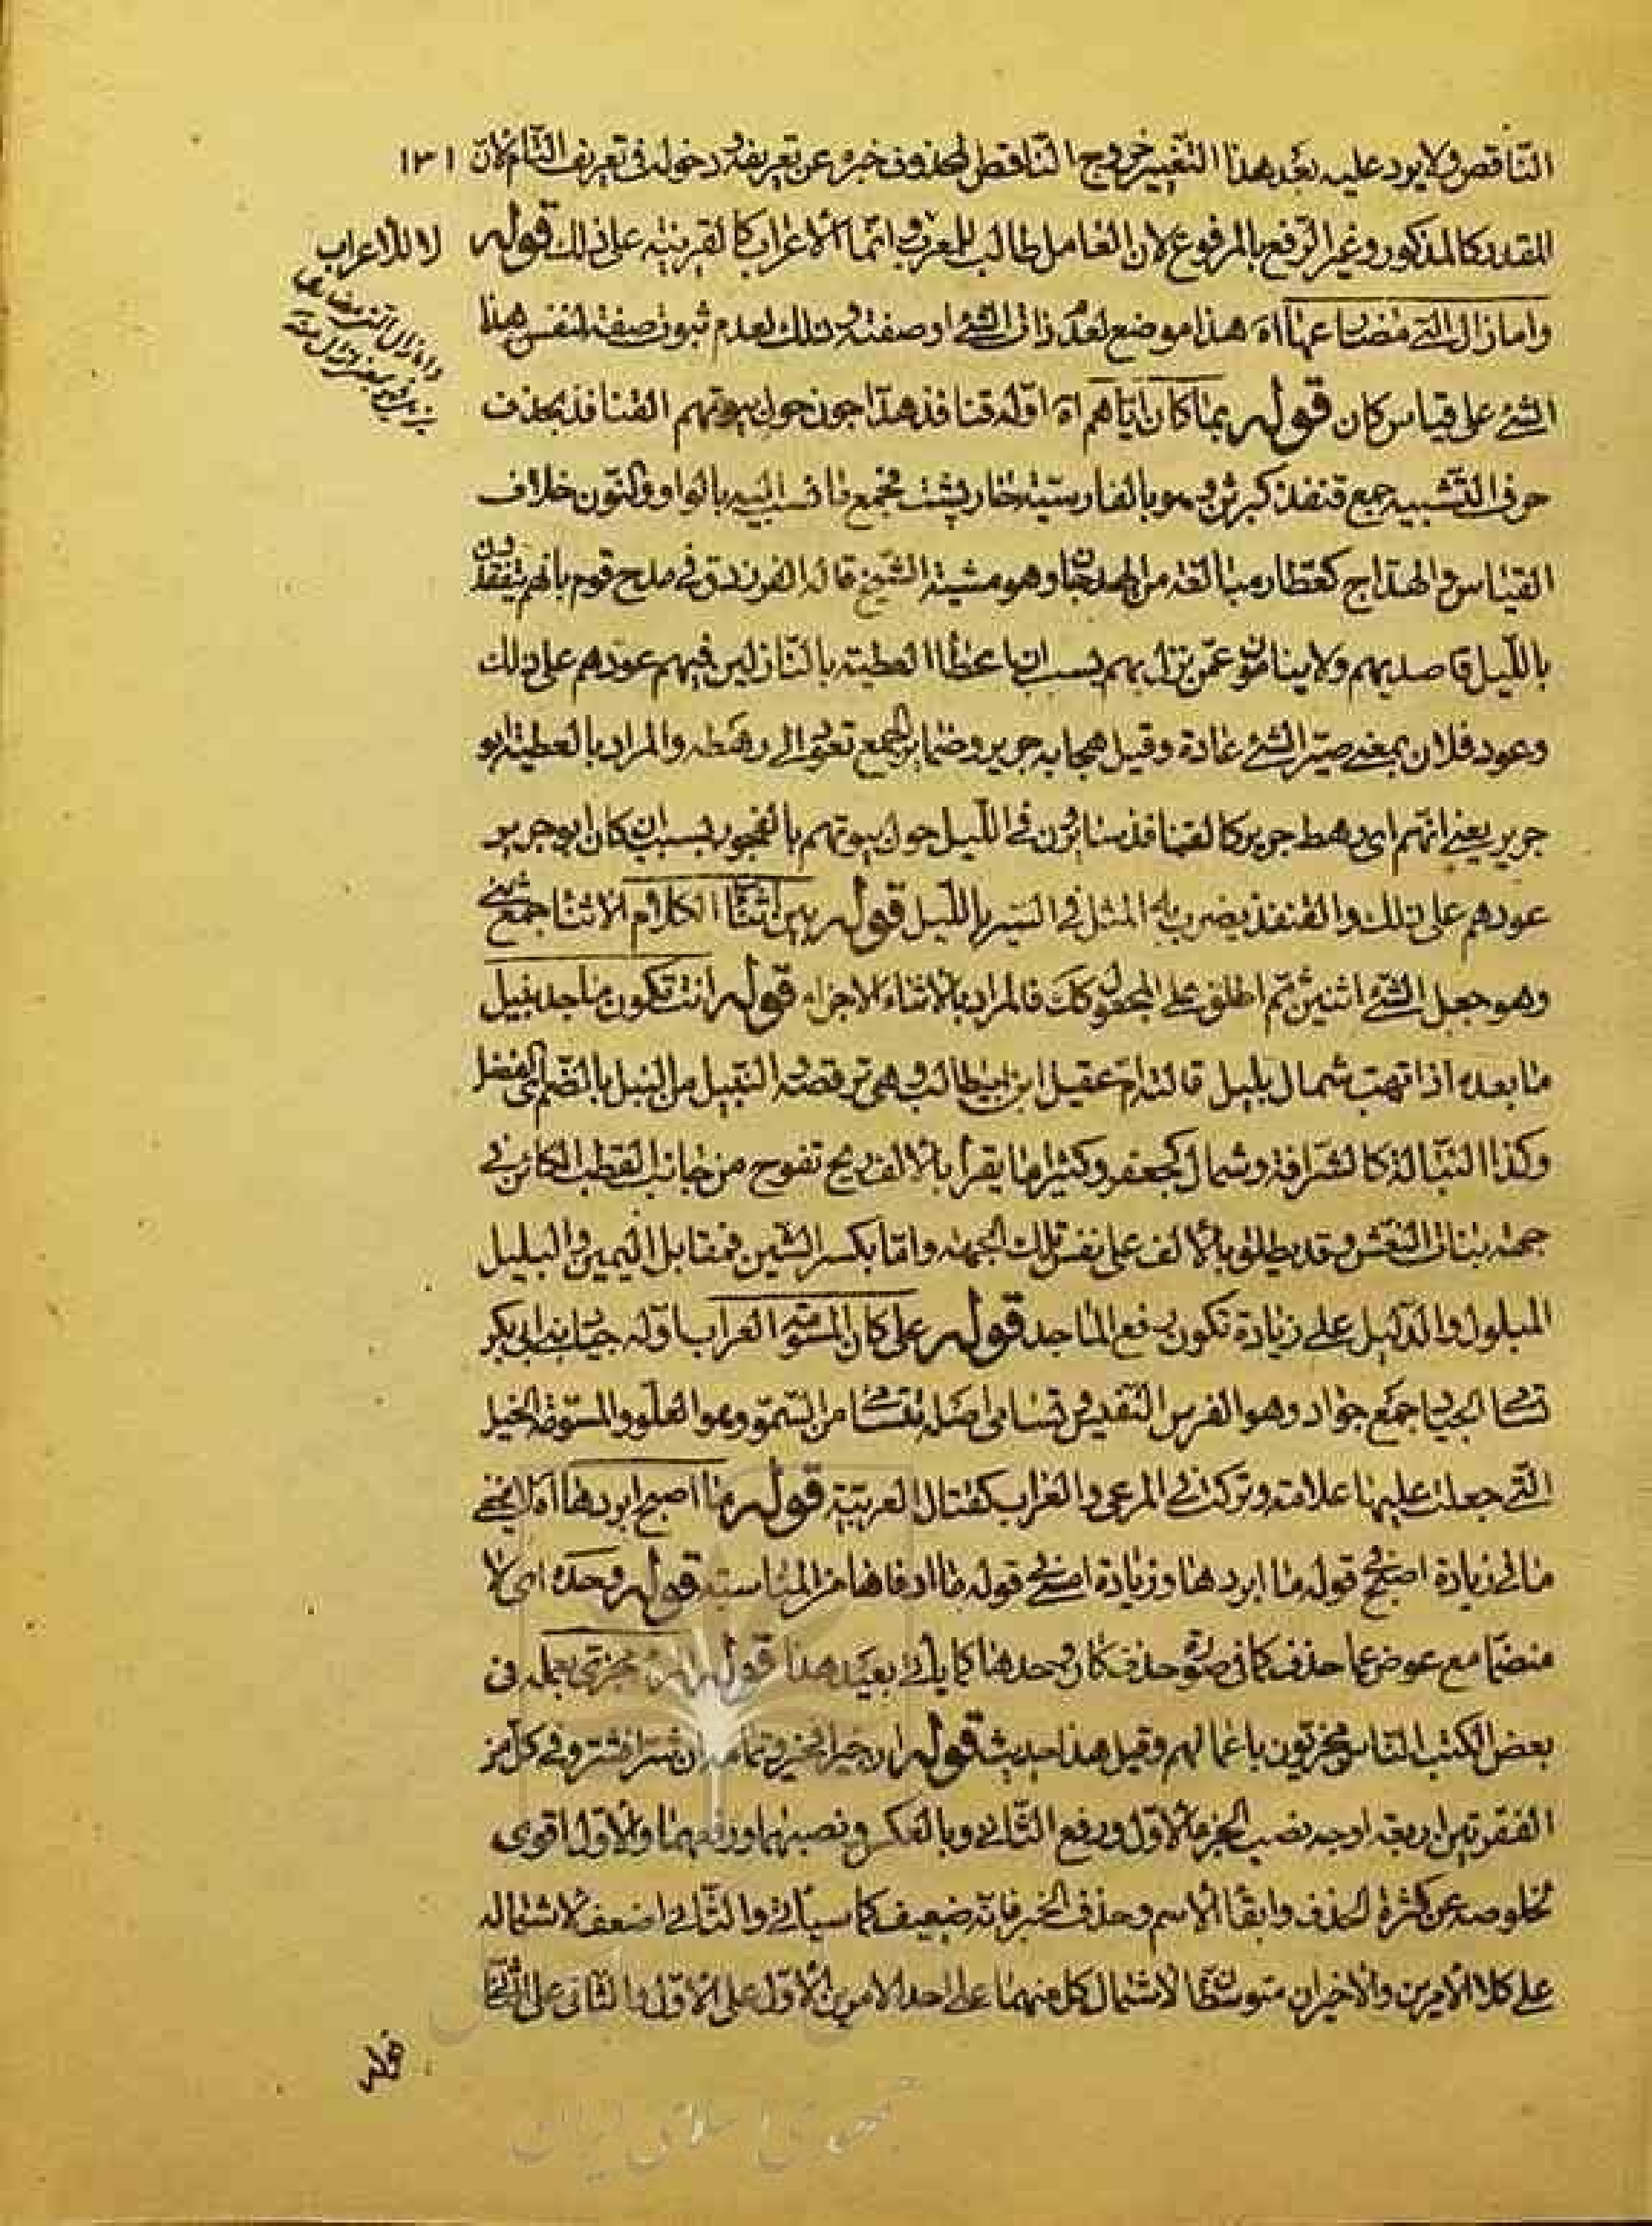 الناقص ولا يرد عليه بعد هذا التغيير خروج الناقص المحذوف خبره عن تعريفه ودخوله فى تعريف التام لان ١٣١
المقدر كالمذكور وغير الرفع بالمرفوع لان العامل طالب للمعرب وانما الاعراب كالقرينه على ذلك قوله لا للاعراب
واما زال التى مضارعها اه هذا موضع لعد ذات الشئ او صفته وذلك لعدم ثبوت صفة لنفس هذا
الشئ على قياس كان قوله بما كان اياهم اه اوله قنافذ هداجون حول بيوتهم القنافذ بحذف
حرف التشبيه جمع قنفذ كبرثن وهو بالفارسية خارپشت فجمع ما نسب اليه بالواو والنون خلاف
القياس والهداج كعطار مبالغه من الهدجان وهو مشية الشيخ قاله الفرزدق فى مدح قوم بانهم يتفقدون
بالليل قاصديهم ولا ينامون عمن نزل بهم بسبب ان اعطاء العطية بالنازلين فيهم عودهم على ذلك
وعود فلان بمعنى صير الشئ عادة وقيل هجا به جرير وضماير الجمع تعود الى رهطه والمراد بالعطية ابو
جرير يعنى انهم اى رهط جرير كالقنافذ سايرون فى الليل حول بيوتهم بالفجور بسبب ان كان ابو جرير
عودهم على ذلك والقنفذ يضرب به المثل فى السير بالليل قوله بين اثناء الكلام الاثناء جمع ثنى
وهو جعل الشئ اثنين ثم اطلق على المجعول كك فالمراد بالاثناء الاجزاء قوله انت تكون ماجد نبيل
ما بعده اذا تهب شمال بليل قالته ام عقيل ابن ابيطالب وهى ترقصه النبيل من النبل بالضم اى الفضل
وكذا النبالة كالشرافة وشمال كجعفر وكثيرا ما يقرأ بالالف ريح تفوح من جانب القطب الكائن فى
جهة بنات النعش وقد يطلق بالالف على نفس تلك الجهه واما بكسر الشين فمقابل اليمين والبليل
المبلول والدليل على زيادة تكون رفع الماجد قوله على كان المسومه العراب اوله جياد بنى ابى بكر
تسامى الجياد جمع جواد وهو الفرس النفيس وتسامى اصله تتسامى من السمو وهو العلو والمسومة الخيل
التى جعلت عليها علامة وتركت فى المرعى والعراب كقتال العربية قوله ما اصبح ابردها اه لا يخفى
ما فى زيادة اصبح فى قوله ما ابردها وزيادة امسى فى قوله ما ادفاها من المناسبة قوله وحده اى لا
منضما مع عوض عما حذف كما فى صورة حذف كان وحدها كما يأتى بعيد هذا قوله المرء مجزى بعمله فى
بعض الكتب الناس مجزيون باعمالهم وقيل هذا حديث قوله ان خيرا فخير وتمامه ان شرا فشر وفى كل من
الفقرتين اربعة اوجه نصب الجزء الاول ورفع الثانى وبالعكس ونصبهما ورفعهما والاول اقوى
لخلوصه عن كثرة الحذف وابقاء الاسم وحذف الخبر فانه ضعيف كما سيأتى والثانى اضعف لاشتماله
على كلا الامرين والاخيران متوسطان لاشتمال كل منهما على احد الامرين الاول على الاول والثانى على الثانى
واما زال التى مضارعها